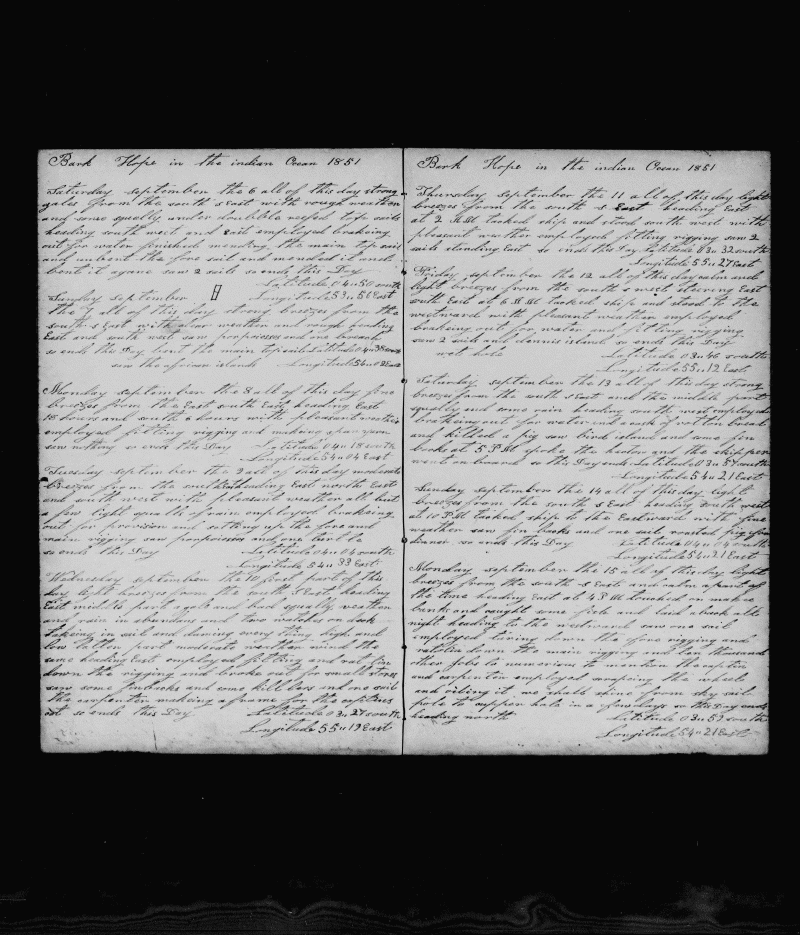 Bark Hope in the indian Ocean 1851
Saturday september the 6 all of this day strong
gales from the south s East with rough weather
and some squally under doubble reefed top sails
heading south west and East employed brakeing
out for water finished mending the main top sail
and unbent the fore sail and mended it and
bent it agane saw 2 sails so ends this Day
Latitude 04 u 50 south
Sunday september Longitude 53 u 56 East
the 7 all of this day strong breezes from the
south s East with clear weather and rough heading
East and south west saw porpoises and one
so ends this Day bent the main top sail Latitude 04 u 38 south
saw the african islands Longitude 54 u 02 East
Monday september the 8 all of this day fine
breezes from the East south East heading East
18 hours and south 6 hours with pleasant weather
employed fitting rigging and makeing
saw nothing so ends this Day Latitude 04 u 18 south
Longitude 54 u 04 East
Tuesday september the 9 all of this day moderate
breezes from the south heading East north East
and south west with pleasant weather all but
a few light squalls of rain employed brakeing
out for provision and setting up the fore and
main rigging saw porpoises and one turtle
so ends this Day Latitude 04 u 04 south
Longitude 54 u 33 East
Wednesday september the 10 first part of this
day light breezes from the south s East heading
East middle part a gale and bad squally weather
and rain in abundans and two watches on deck
takeing in sail and haveing every thing high and
low latter part moderate weather wind the
same heading East employed fitting and ratlin
down the rigging and broke out for small stores
saw some finbacks and some killlers and one sail
the carpenter makeing a frame for the captines
cot so ends this Day Latitude 03 u 27 south
Longitude 55 u 19 East
Bark Hope in the indian Ocean 1851
Thursday september the 11 all of this day light
breezes from the south s East heading East
at 2 P.M. tacked ship and stood south west with
pleasant weather employed fitting rigging saw 2
sails standing East so ends this Day Latitude 03 u 32 south
Longitude 55 u 27 East
Friday september the 12 all of this day calm and
light breezes from the south s west steering East
south East at 6 A.M tacked ship and stood to the
westward with pleasant weather employed
brakeing out for water and fitting rigging
saw 2 sails and dennis island so ends this Day
wet hold Latitude 03 u 46 south
Longitude 55 u 12 East
Saturday september the 13 all of this day strong
breezes from the south s East and the middle part
squally and some rain heading south west employed
brakeing out for water and a cask of rotton bread
and killed a pig saw bird island and some fin
backs at 5 P.M. spoke the hector and the skipper
went on board so this Day ends Latitude 03 u 57 south
Longitude 54 u 21 East
Sunday september the 14 all of this day light
breezes from the south s East heading south west
at 10 P.M tacked ship to the Eastward with fine
weather saw fin backs and one sail roasted pig for
dinner so ends this Day Latitude 04 u 04 south
Longitude 54 u 21 East
Monday september the 15 all of this day light
breezes from the south s East and calm a part of
the time heading East at 4 P.M. touched on makee
bank and caught some fish and laid aback all
night heading to the westward saw one sail
employed taring down the fore rigging and
ratlin down the main rigging and ten thousand
other jobs to numerious to mention the captin
and carpenter employed scraping the wheele
and oileing it we shall shine from sky sail
pole to copper hole in a few days so this Day ends
heading north Latitude 03 u 59 south
Longitude 54 u 21 East